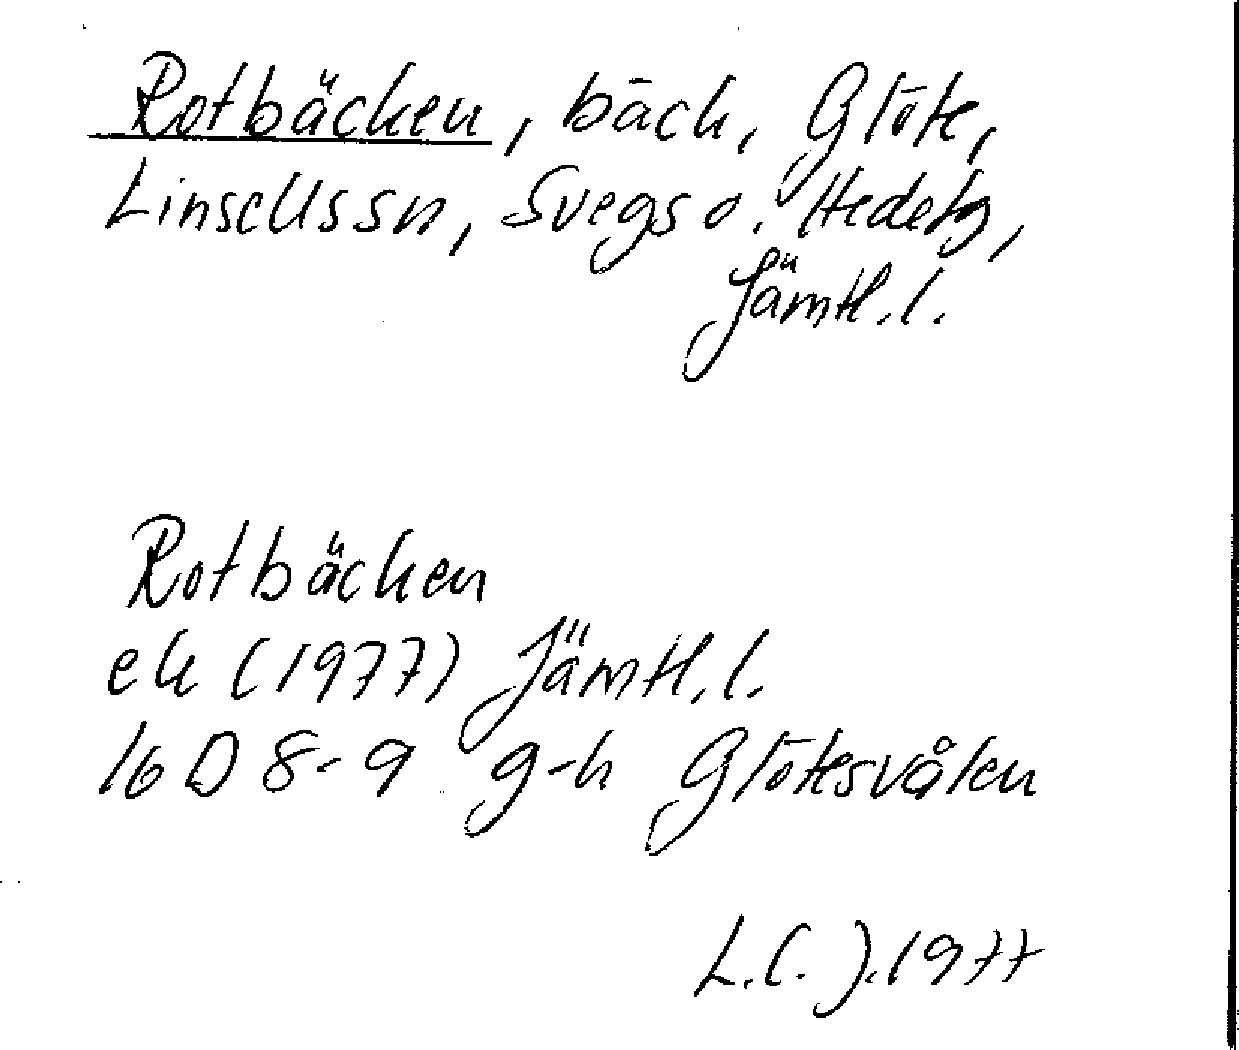 Rotbäcken, bäck, Glöte,
Linsellssn, Svegs o. Hedetg,
Jämtl.l.
Rotbäcken
ek (1977) Jämtl.l.
16 D 8-9 g-h Glötesvålen
L.C.J.1977